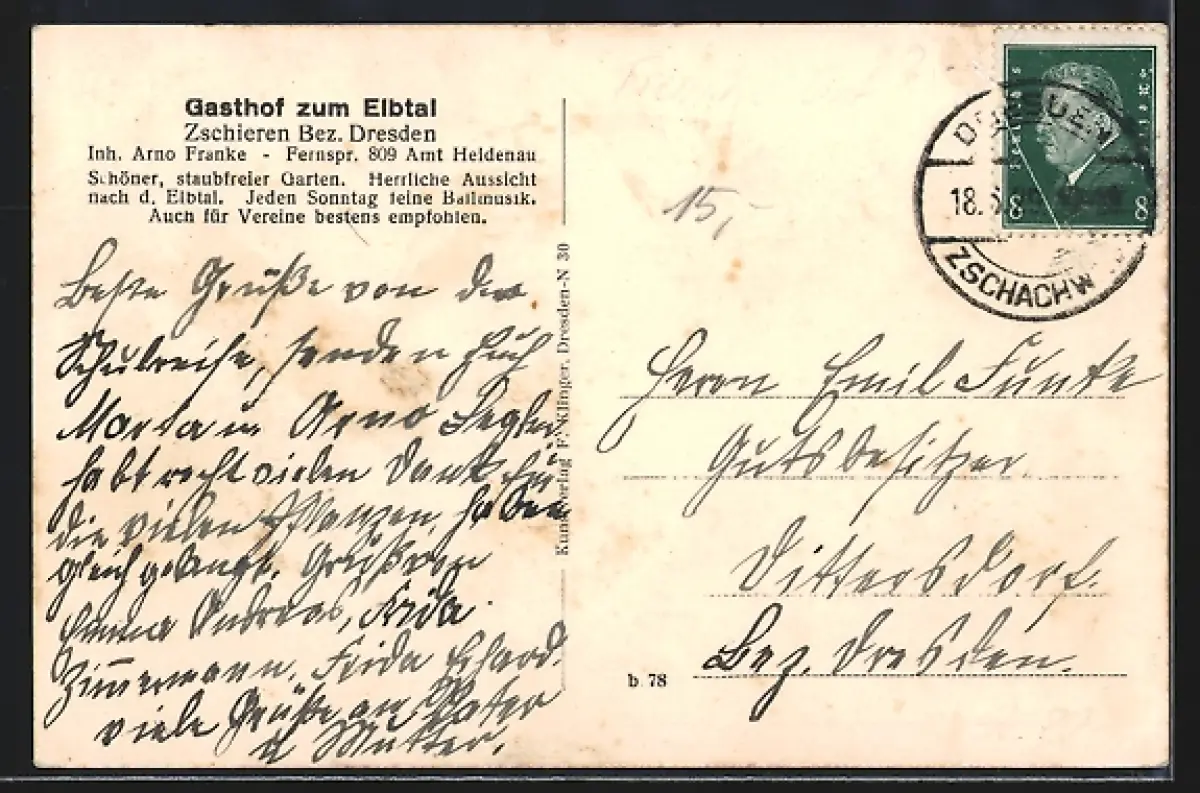 Gasthof zum Elbtal
Zschieren Bez. Dresden
Inh. Arno Franke - Fernspr. 809 Amt Heidenau
Schöner, staubfreier Garten. Herrliche Aussicht
nach d. Elbtal. Jeden Sonntag feine Ballmusik.
Auch für Vereine bestens empfohlen.
Beste Grüße von der
Schulreise, senden Euch
Marta u Arno
habt recht vielen Dank für
die vielen Pflanzen, haben
gleich gelangt. Grüße von
Emma Andreas, Frida
Zimmermann. Frida Erhard.
viele Grüße an Vater
u Mutter.
Kunstverlag F. Klinger, Dresden-N 30
15,-
DRESDEN
18.
ZSCHACHW
8 8
Herrn Emil Funke
Gutsbesitzer
Dittersdorf.
Bez. Dresden.
b 78